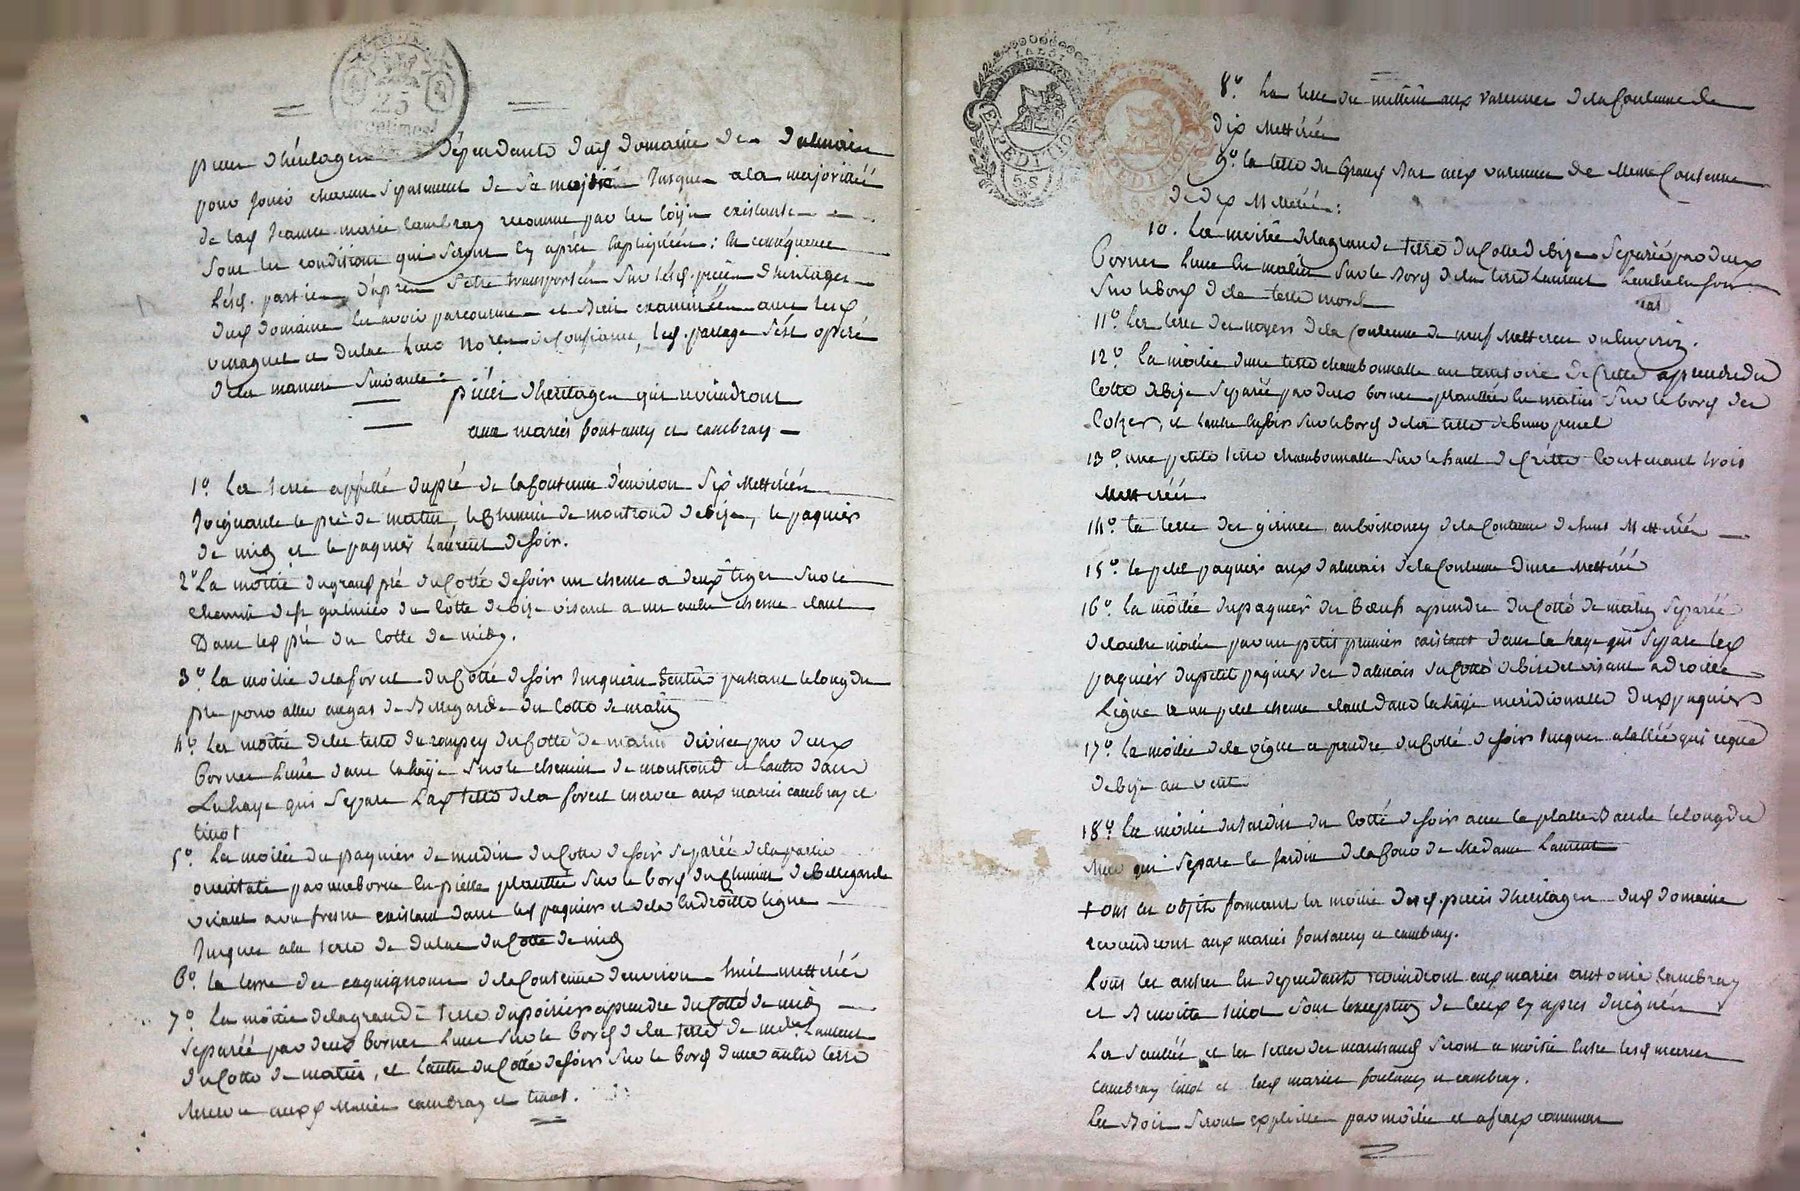 25
centimes
pieces d'héritages dépendants dud. domaine de dalmais
pour jouir chacun séparément de sa moitié Jusques a la majorité
de lad. Jeanne marie Cambray reconnue par les loix existantes
sous les conditions qui seront cy après expliquées: en conséquence
lesd. parties, d'après s'être transportées sur lesd. pièces d'héritages
dud. domaine les avoir parcourues et bien examinées avec lesd.
et dulac leurs de confiance, led. partage s'est opéré
de la maniere suivante:
pièces d'héritages qui reviendront
aux mariés fontaney et cambray
1º. La terre appellé du pré de la fontaine d'environ six Mettérées
Joignante le pré de matin, le Chemin de montrond de bize, le paquier
de midy et le paquier Laurent de soir.
2º La moitié du grand pré du Cotté de soir un chene a deux tiges sur le
chemin de st galmier du Cotté de bize visant a un autre chene étant
Dans led. pré du Cotté de midy.
3º La moitié de la forest du Cotté de soir Jusqu'au sentier passant le long du
pré pour aller au gas de Bellegarde du Cotté de matin
4º. La moitié de la terre du rampey du Cotté de matin divisée par deux
Bornes L'une dans la haye sur le chemin de montrond et l'autre dans
La haye qui sépare lad. terre de la forest encore aux mariés cambray et
tinot
5º. La moitié du paquier de mudin du Cotté de soir séparée de la partie
orientale par une borne en pierre plantée sur le bord du Chemin de Bellegarde
visant a un fresne existant dans led. paquier et de la en droitte ligne
Jusques a la terre de dulac du Cotté de midy
6º. La terre des caquignones de la Contenue d'environ huit mettérées
7º. La moitié de la grande terre du poirier a prendre du Cotté de midy
séparée par deux bornes L'une sur le bord de la terre de mde. Laurent
du Cotté de matin, et l'autre du Cotté de soir sur le bord d'une autre terre
encore auxd. Mariés cambray et tinot.
LA LOI
EXPEDITION
8º. La terre du millieu aux varennes de la Contenue de
dix Mettérées
9º. La terre du Grand Bas aux varennes de Meme Contenue
de dix Mettérées:
10. La moitié de la grande terre du Cotté de bize séparée par deux
Bornes L'une en matin sur le bord de la terre Laurent L'autre en soir
sur le bord de la terre morel
11º. La terre des noyers de la Contenue de neuf Mettérées ou environ.
12º. La moitié d'une terre chambonnalle au territoire de Crette a prendre du
Cotté de bize séparée par deux bornes plantées en matin sur le bord des
et l'autre en soir sur le bord de la terre de
13º. une petite terre chambonnalle sur le haut de Crette Contenant trois
Mettérées
14º. La terre des au de la Contenue de huit Mettérées
15º. Le petit paquier aux dalmais de la Contenue d'une Mettérée
16º. La moitié du paquier des Bœufs a prendre du Cotté de matin séparée
de l'autre moitié par un petit prunier existant dans la haye qui sépare led.
paquier du petit paquier des dalmais du Cotté de bize et visant a droitte
Ligne a un petit chene étant dans la haye méridionnalle dud. paquier
17º. La moitié de la vigne a prendre du Cotté de soir Jusques a l'allée qui regne
de bize au vent
18º. La moitié du Jardin du Cotté de soir avec la platte Bande le long du
Mur qui sépare le Jardin de la Cour de Madame Laurent
Tous les objets formant la moitié desd. pieces d'héritages dud. domaine
reviendront aux mariés fontaney et cambray.
Tous les autres en dépendants reviendront aux mariés antoine Cambray
et Benoitte tinot sous l'exception de Ceux cy après désignés
La saulée et la terre des marchands seront a moitié entre lesd. mariés
cambray tinot et lesd. mariés fontaney et cambray.
Les Bois seront exploités par moitié et a frais communs